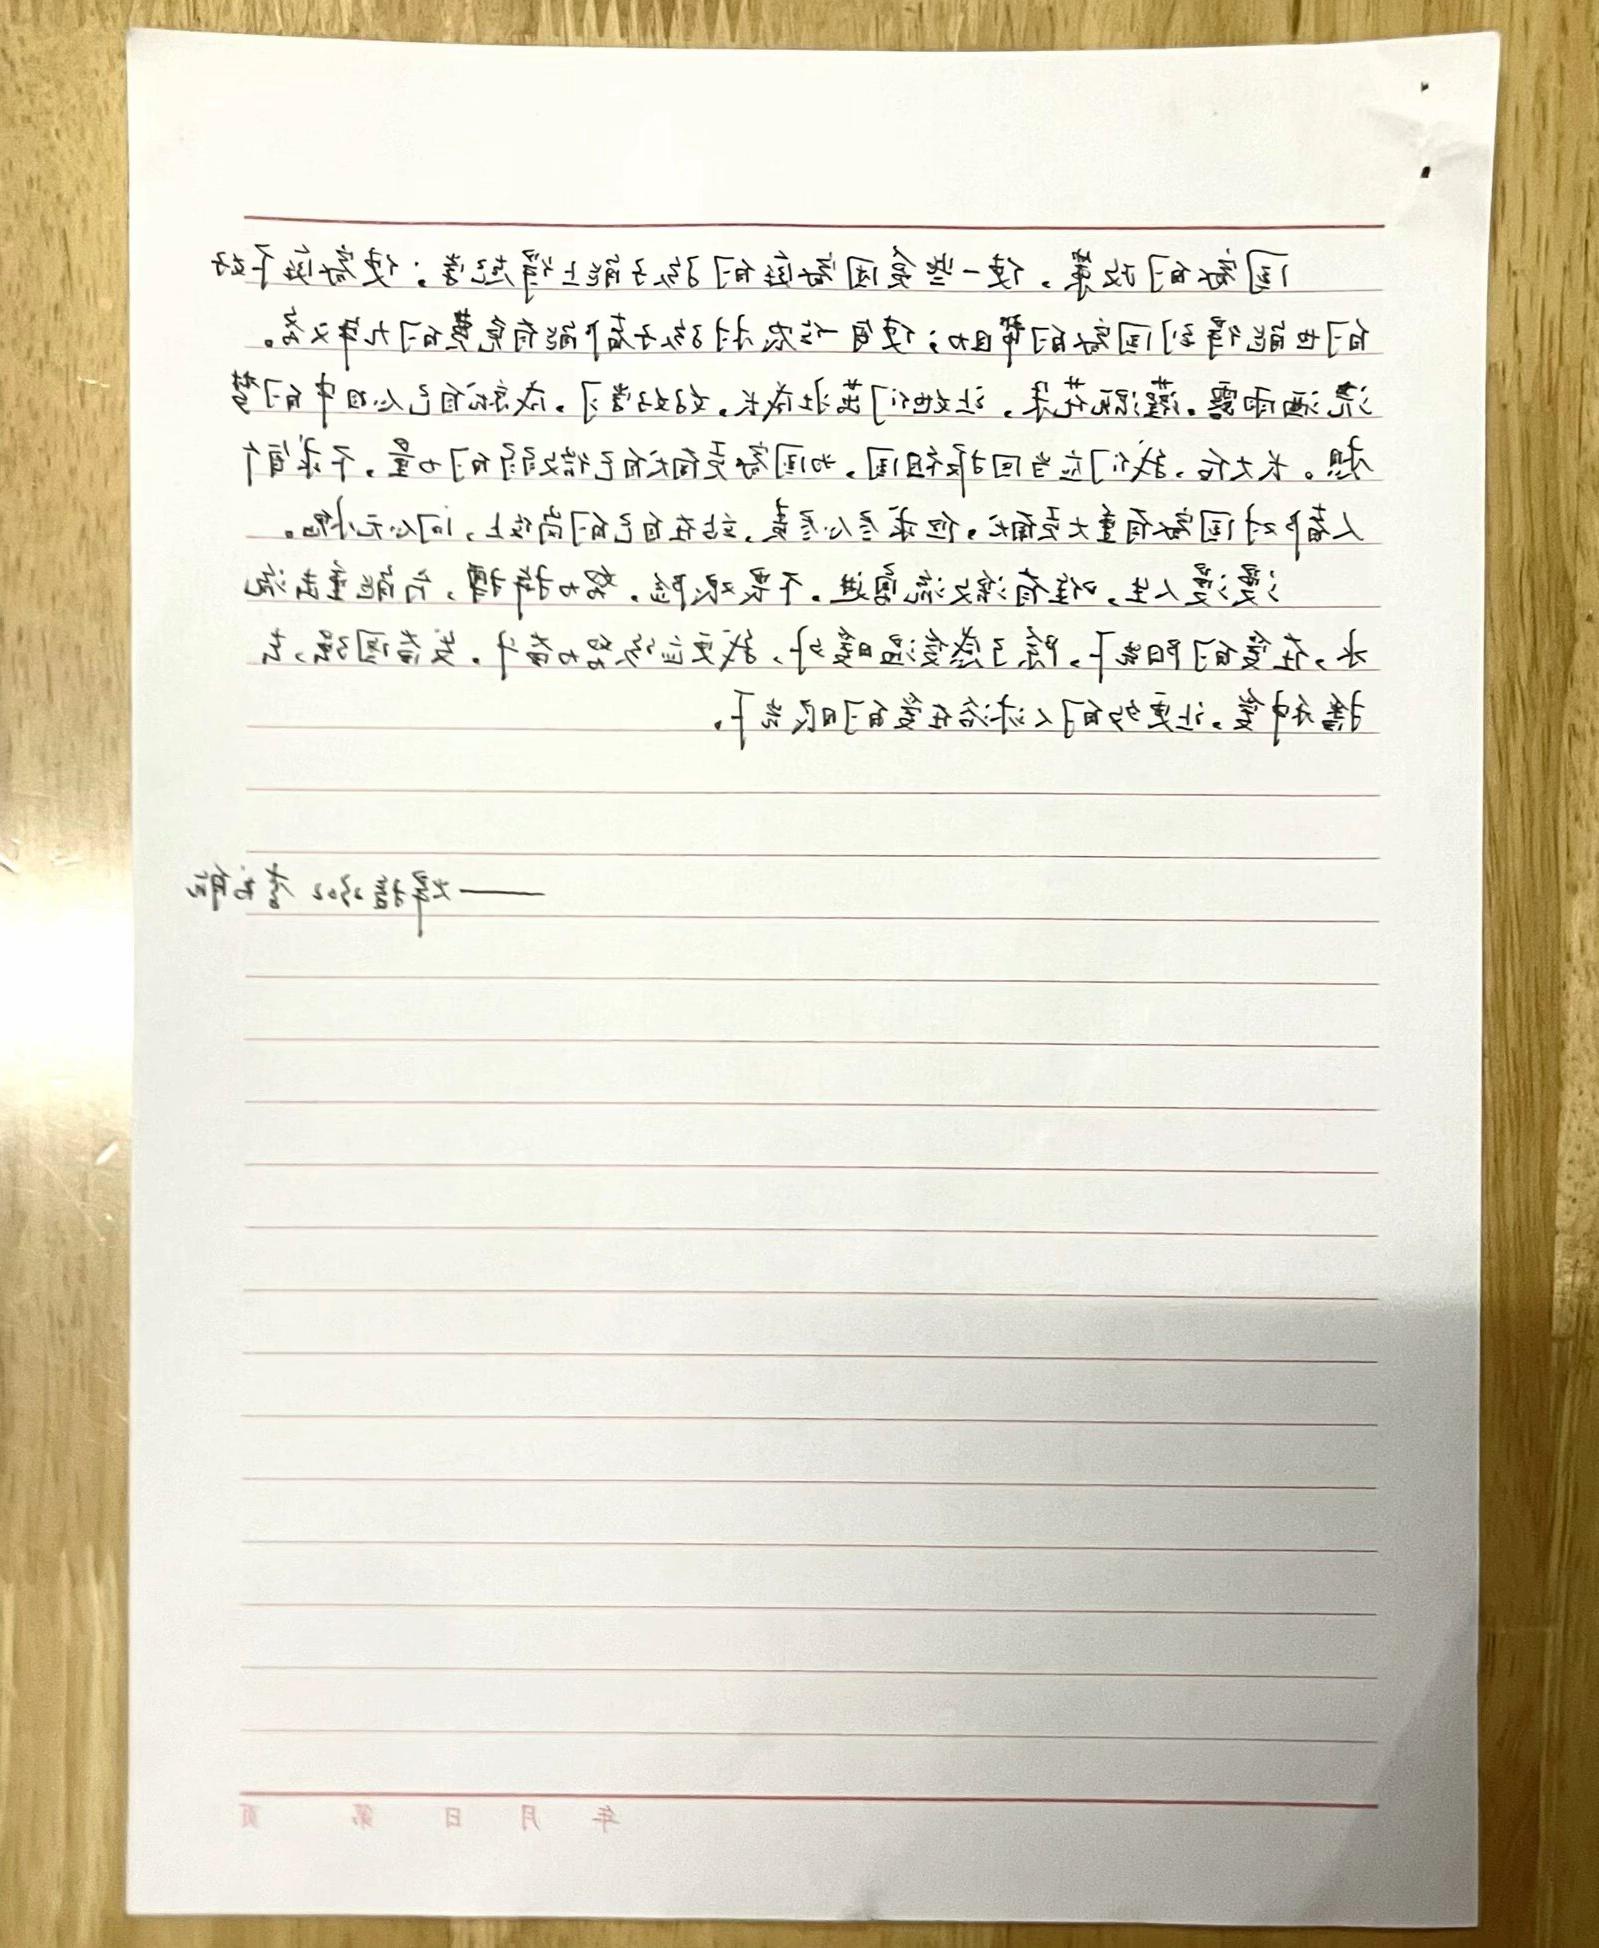 国家的政策，使一些贫困家庭的孩子能上得起学；使家庭不好
的也能得到国家的帮助；使每一位农村孩子都能有免费的九年义务。
洒雨露，灌溉花朵，让她们茁壮成长，好好学习，放飞自己心目中的梦
想。长大后，我们应当回报祖国，为国家贡献自己微弱的力量，不求值个
人都对国家有重大贡献，但求尽心尽责，站在自己的岗位上，问心无愧。
漫漫人生，唯有激流勇进，不畏艰险，努力拼搏，方能中流
水，在爱的阳光下，除了感受温暖外，我更应该努力奋斗，发奋图强，去
播种爱，让更多的人沐浴在爱的阳光下。
——文择 2302
年 月 日 第 页